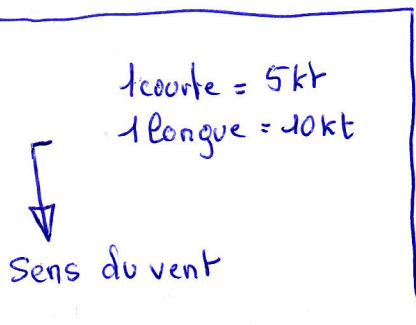 1 courte = 5kt
1 longue = 10kt
Sens du vent